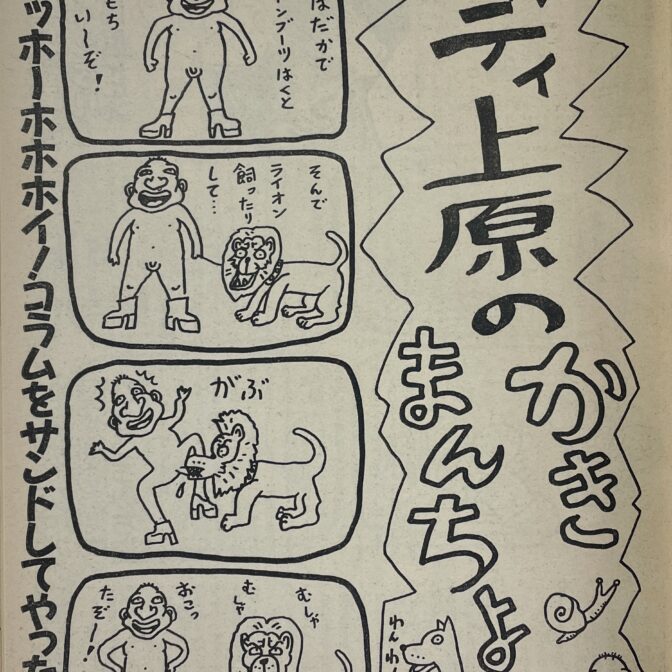 ディ上原の
かき
まんちょ
わんわ
はだかで
ンブーツはくと
もち
い〜ぞ!
そんで
ライオン
飼ったり
して…
がぶ
むしゃ
むしゃ
おこっ
たぞー!
ッホーホホホイ!コラムをサンドしてやった